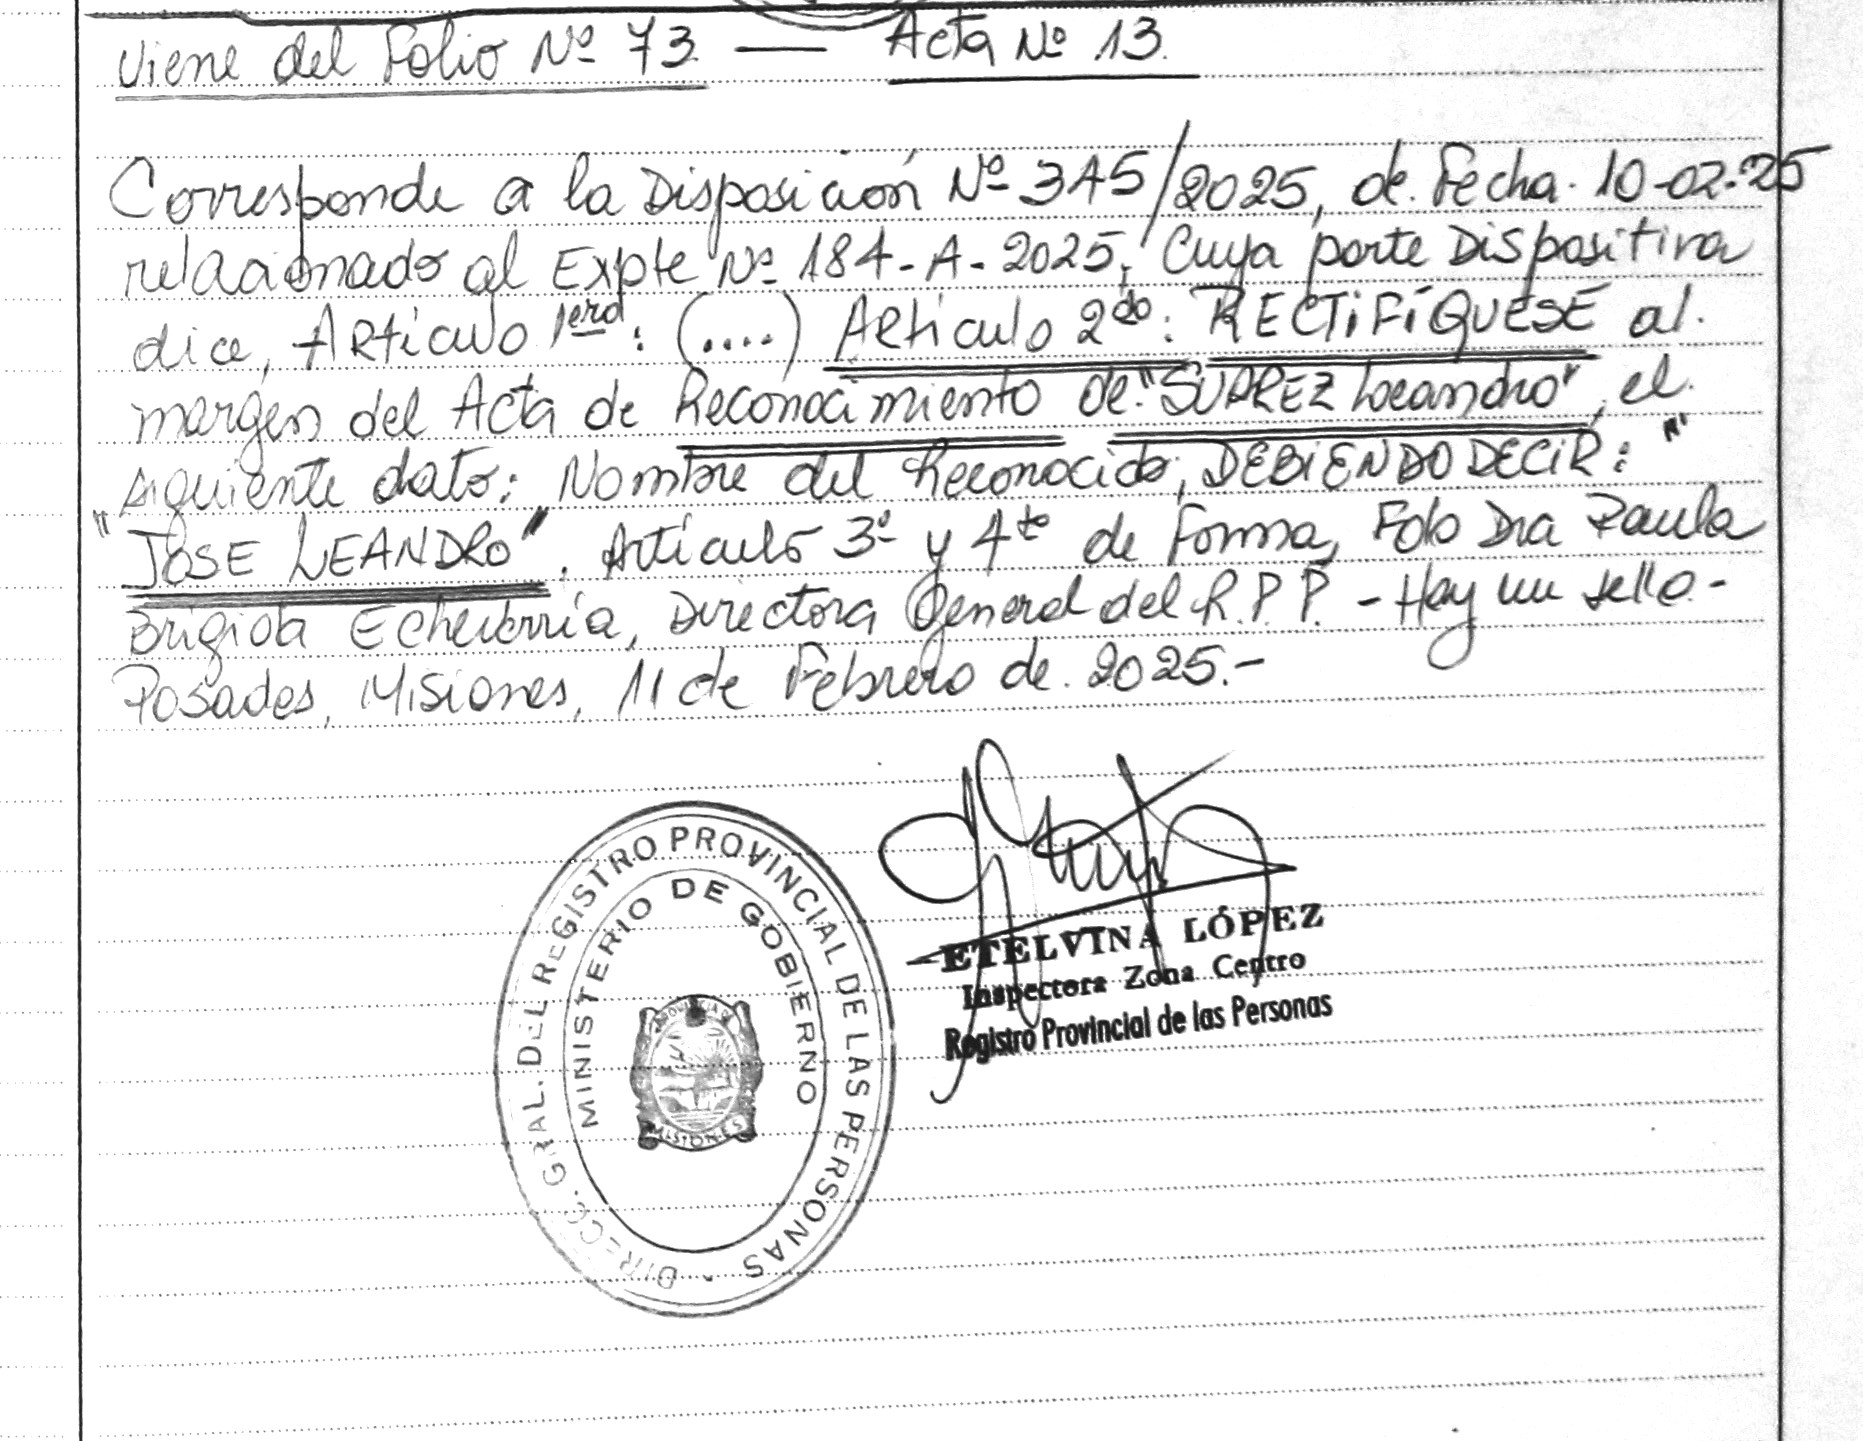 Viene del Folio Nº 73 — Acta Nº 13.
Corresponde a la Disposición Nº 345/2025, de Fecha. 10-02-25
relacionado al Expte Nº 184-A-2025, Cuya parte Dispositiva
dice, Artículo 1ero: (....) Artículo 2do: RECTIFÍQUESE al.
margen del Acta de Reconocimiento de "SUAREZ Leandro", el.
siguiente dato: Nombre del Reconocido, DEBIENDO DECIR: "
"JOSE LEANDRO". Artículo 3º y 4to de Forma, Fdo Dra Paula
Brigida Echeverría, Directora General del R.P.P. - Hay un sello.-
Posadas, Misiones, 11 de Febrero de 2025.-
ETELVINA LÓPEZ
Inspectora Zona Centro
Registro Provincial de las Personas
DIRECC. GRAL. DEL REGISTRO PROVINCIAL DE LAS PERSONAS
MINISTERIO DE GOBIERNO
PROVINCIA DE
MISIONES